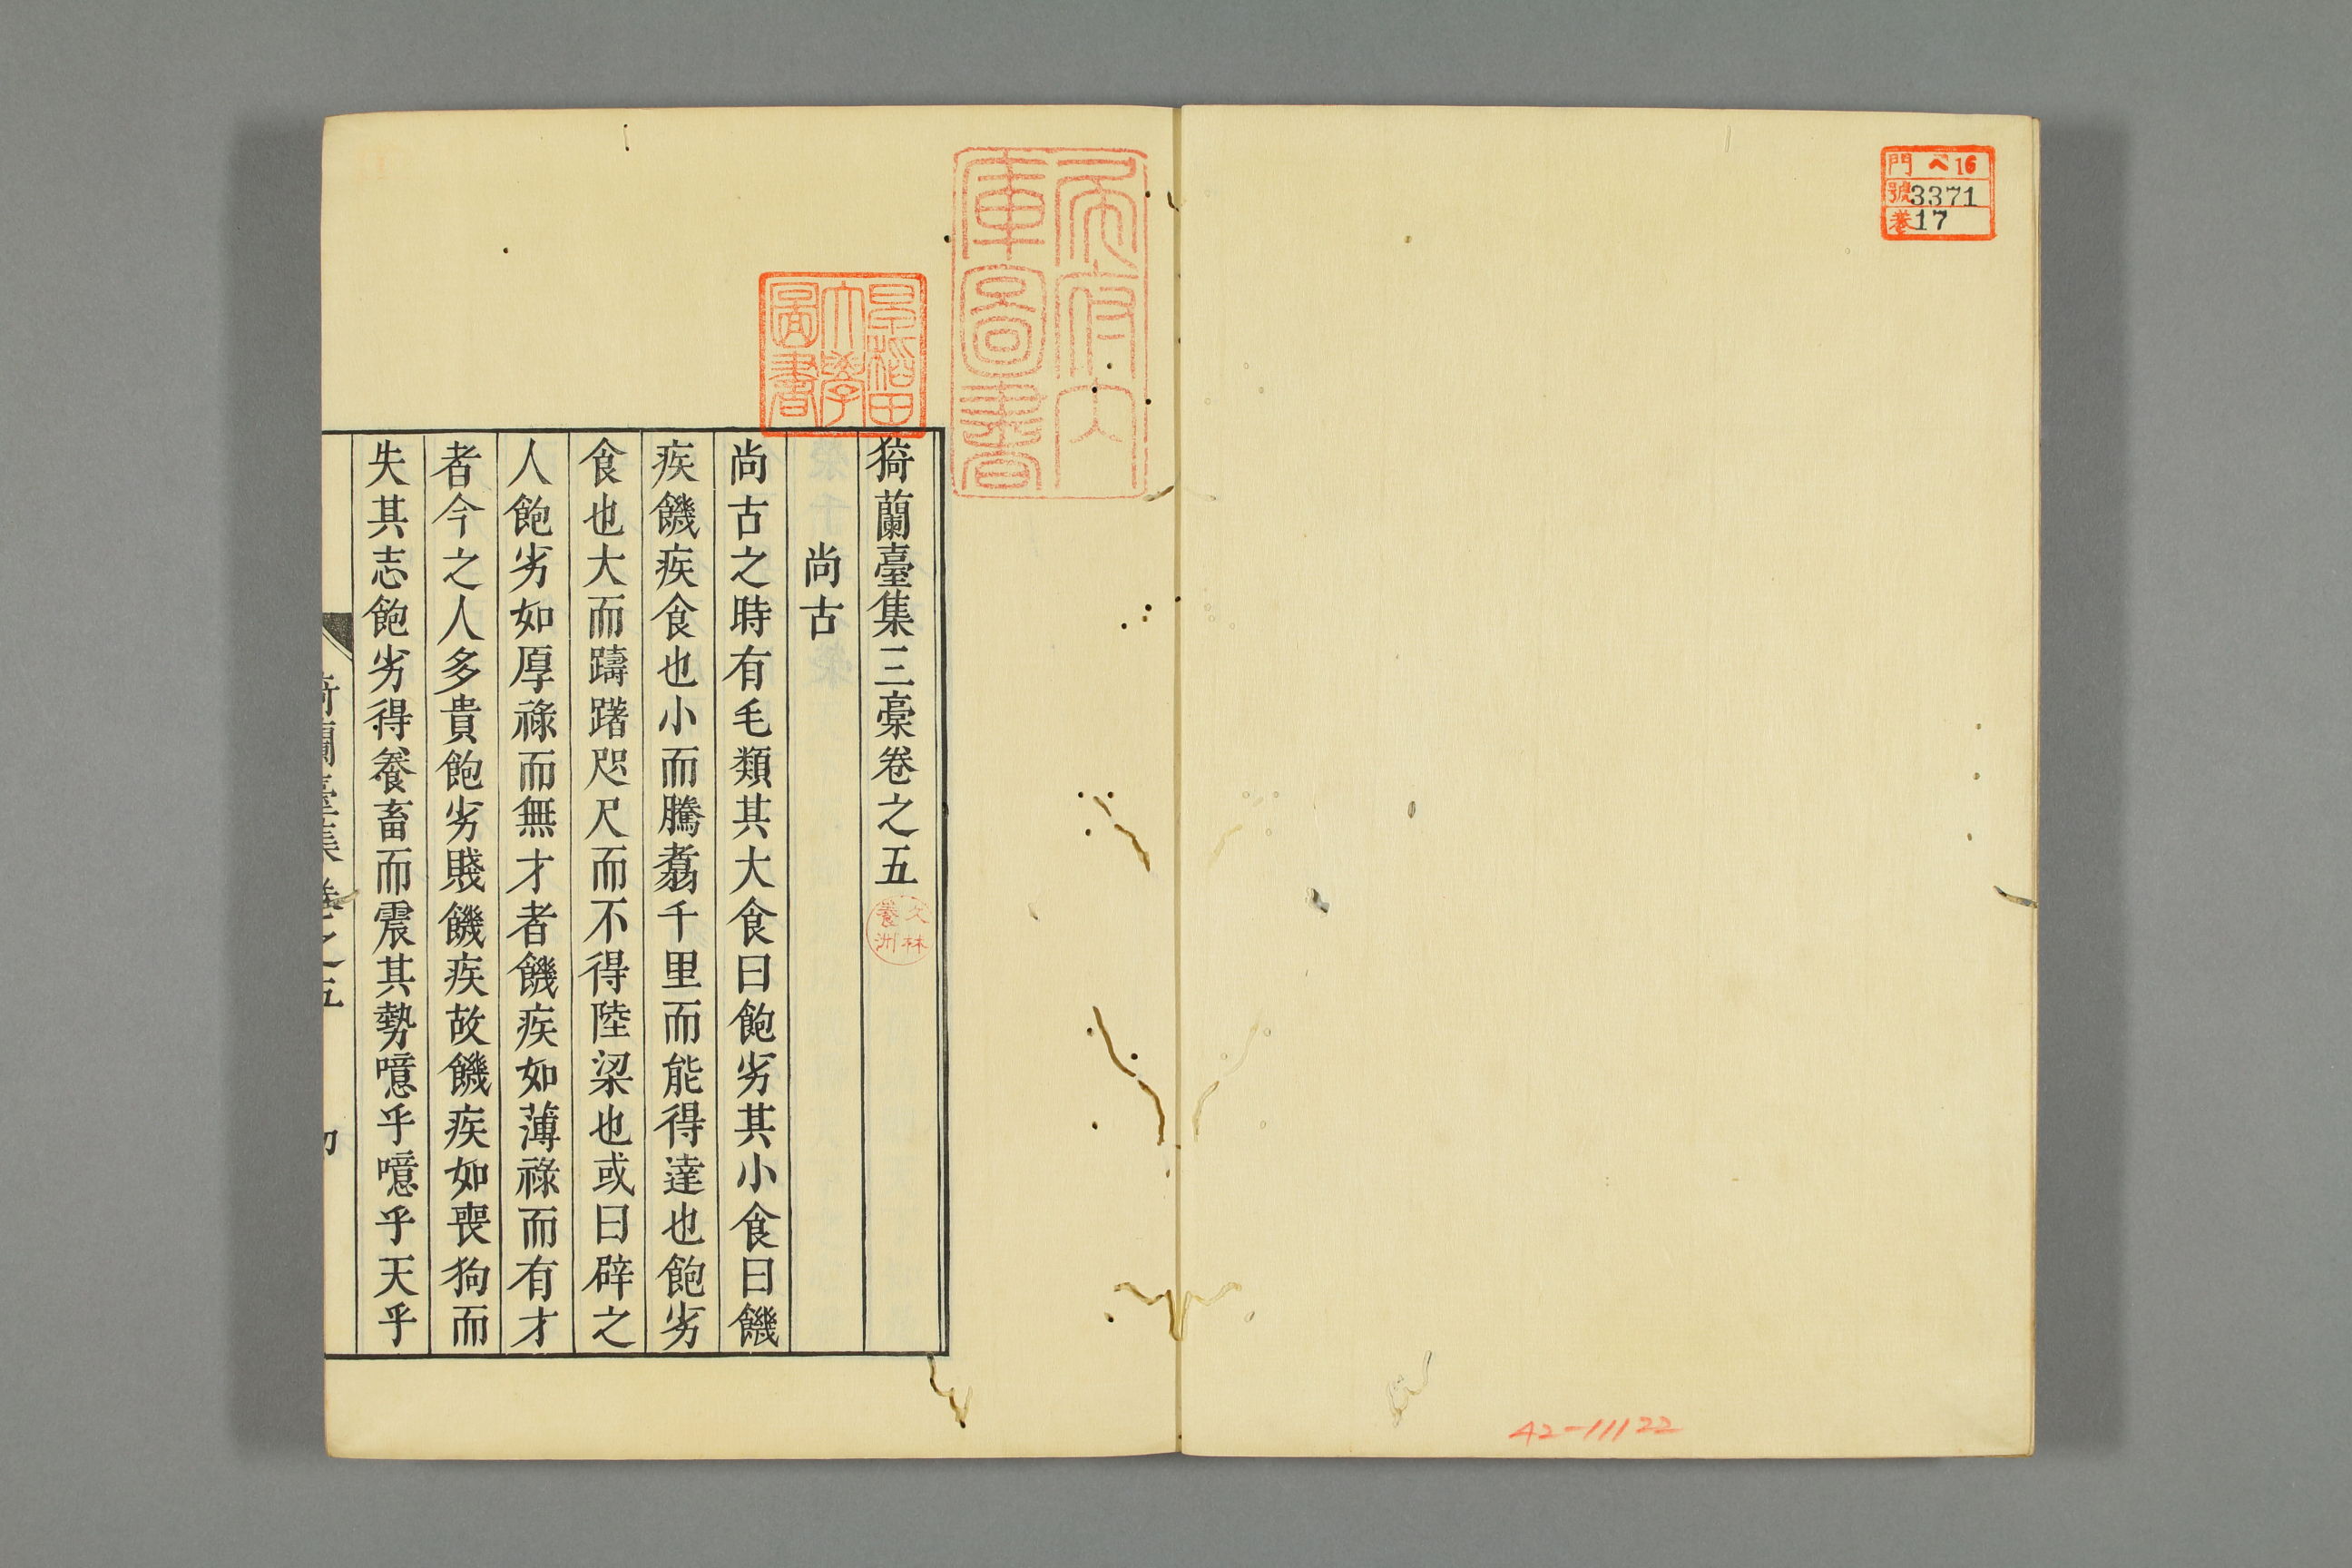 門 ヘ16
號 3371
卷 17
42-11122
早稲田
大學
圖書
猗蘭臺集三稾卷之五
文林
養洲
尚古
尚古之時有毛類其大食曰飽劣其小食曰饑
疾饑疾食也小而騰翥千里而能得達也飽劣
食也大而躊躇咫尺而不得陸梁也或曰辟之
人飽劣如厚祿而無才者饑疾如薄祿而有才
者今之人多貴飽劣賤饑疾故饑疾如喪狗而
失其志飽劣得養畜而震其勢噫乎噫乎天乎
猗蘭臺集 卷之五